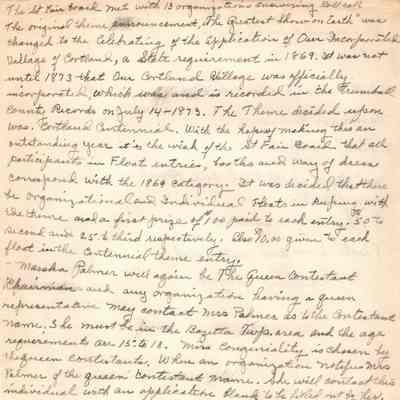 The St Fair Board met with 13 organizations answering Roll call
The original theme announcement, "The Greatest Show on Earth" was
changed to the Celebrating of the application of Our Incorporated
Village of Cortland, a State requirement in 1869. It was not
until 1873 that Our Cortland Village was officially
incorporated, which was and is recorded in the Trumbull
County Records on July 14-1873. The Theme decided upon
was. Cortland Centennial. With the hopes of making this an
outstanding year it is the wish of the St Fair Board that all
participants in Float entries, booths and way of dress
correspond with the 1869 Category. It was decided that there
be organizational and Individual floats in keeping with
the time and a first prize of $100 paid to each entry. $50 to
second and 25 to third respectively. Also $10.00 given to each
float in the Centennial theme entry.
- Marsha Palmer will again be The Queen Contestant
Chairman and any organization having a queen
representative may contact Mrs Palmer as to the Contestant
name. She must be in the Bazetta Twp. area and the age
requirements are 15 to 18. Miss Congeniality is chosen by
the queen contestants. When an organization notifies Mrs
Palmer of the queen contestant name. She will contact this
individual with an application blank to be filled out by her.